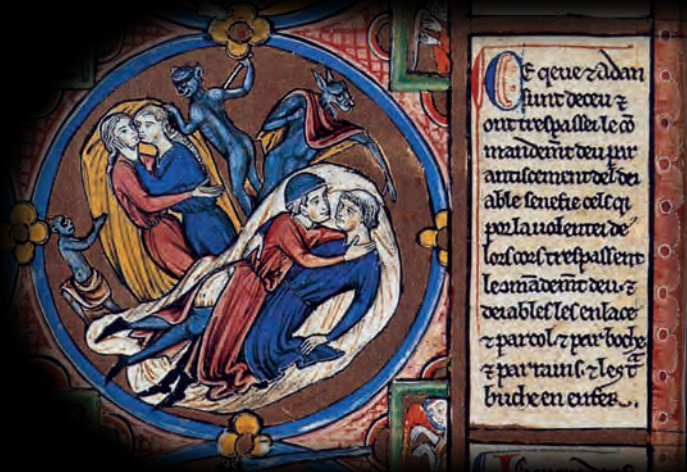 Ce qeue ⁊ adan
sunt deceu ⁊
ont trespassei le cō
mandemt deu par
antiscement del dei
able senefie cels qi
por la uolentei de
lors cors trespassent
le mādemt deu. ⁊
deiables les enlace
⁊ par col. ⁊ par boche
⁊ par rains. ⁊ les t̄
buche en enfer.